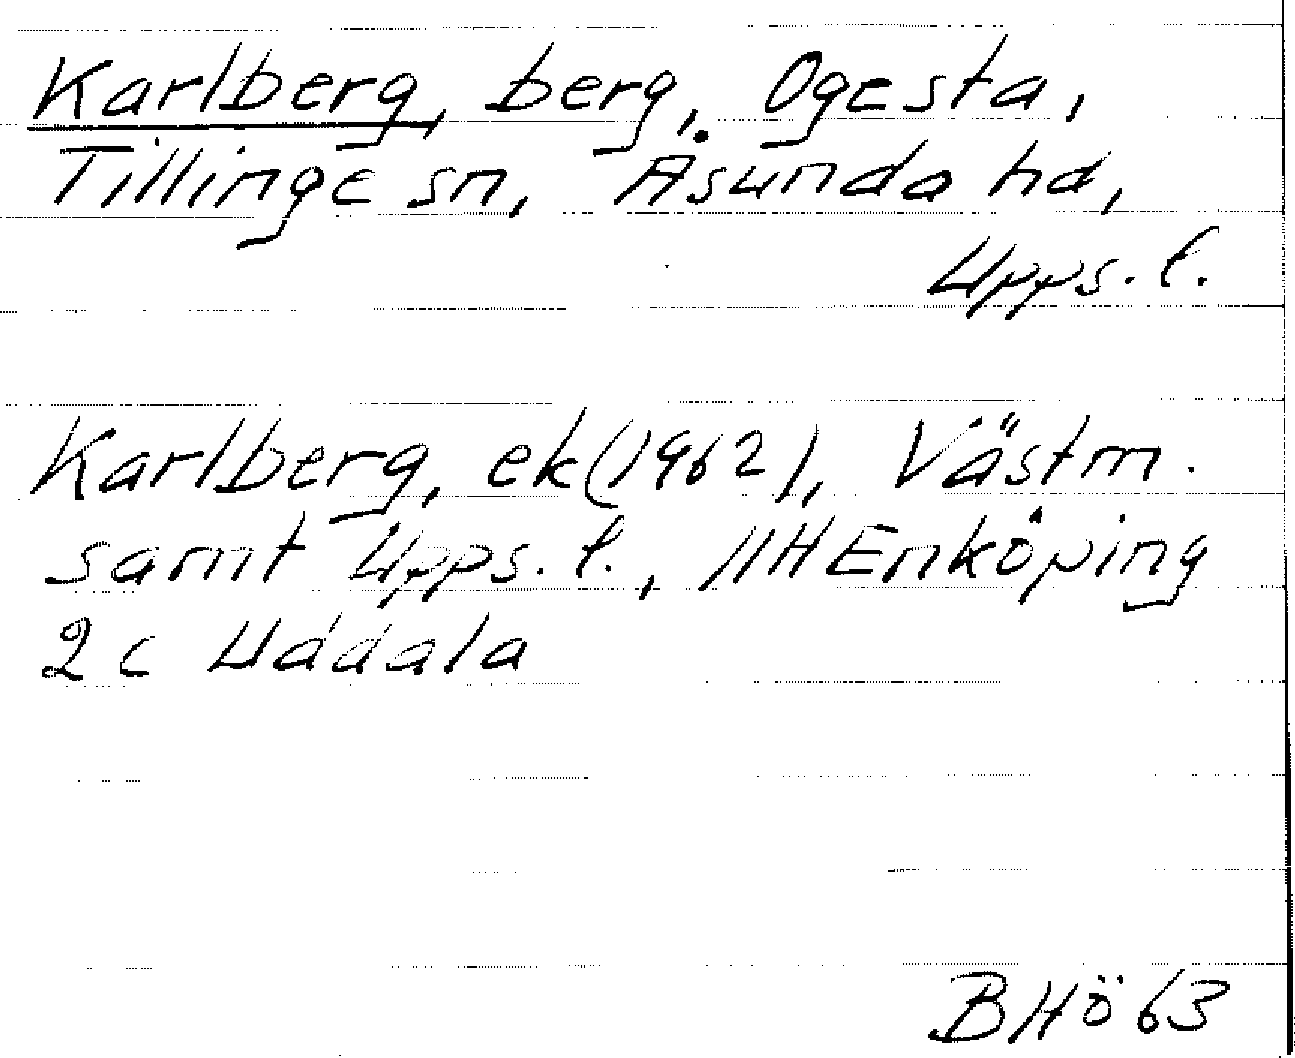 Karlberg, berg, Ogesta,
Tillinge sn, Åsunda hd,
Upps. l.
Karlberg, ek (1962), Västm.
samt Upps. l., 11H Enköping
2c Uddala
BHö 63